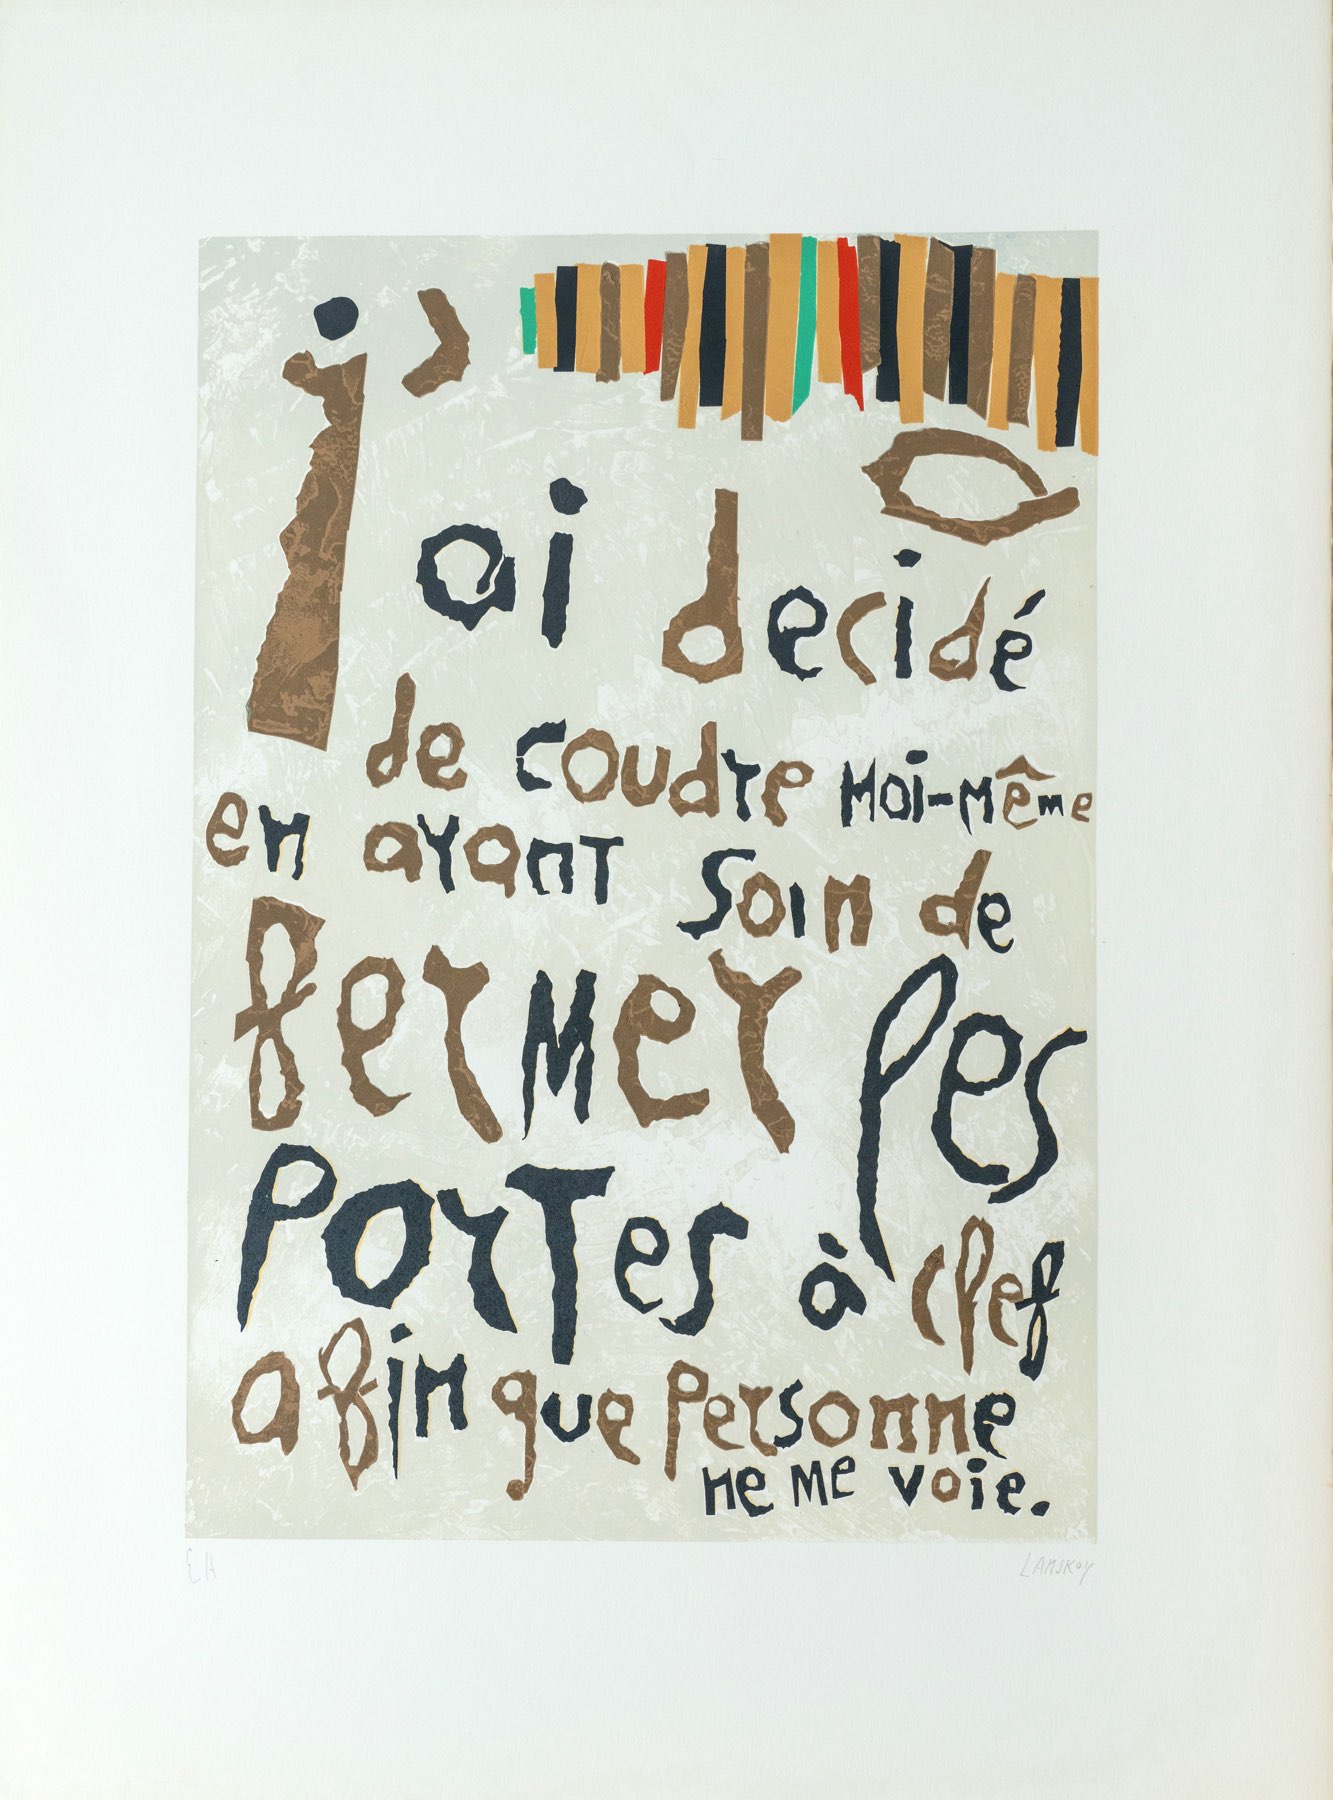 j'ai decidé
de coudre moi-même
en ayant soin de
fermer les
portes à clef
afin que personne
ne me voie.
E.A
LANSKOY